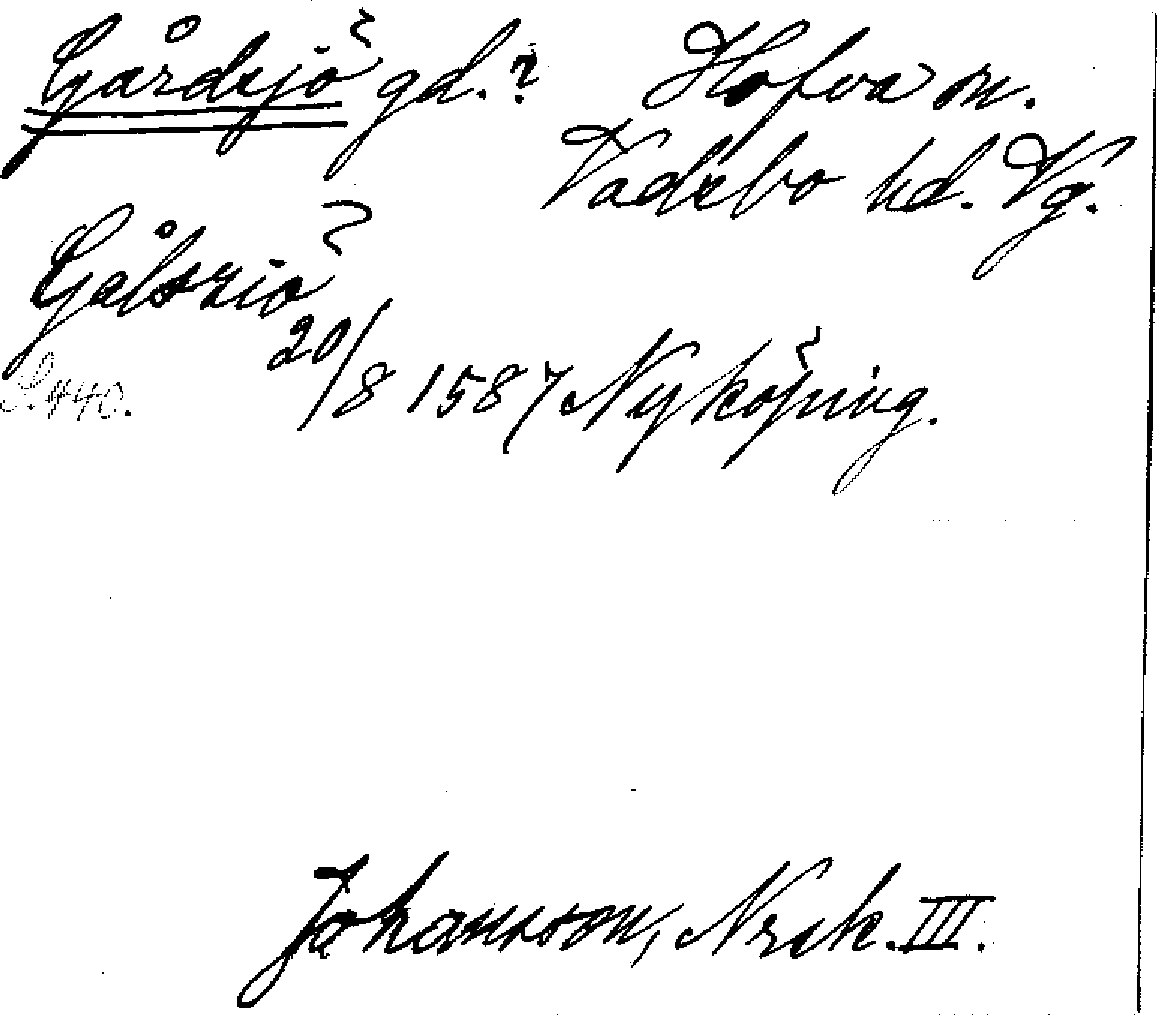 Gårdsjö gd.? Hofva sn.
Vadsbo hd. Vg.
Gålsziö
20/8 1587 Nyköping.
S. 440.
Johansson, Nrik. III.